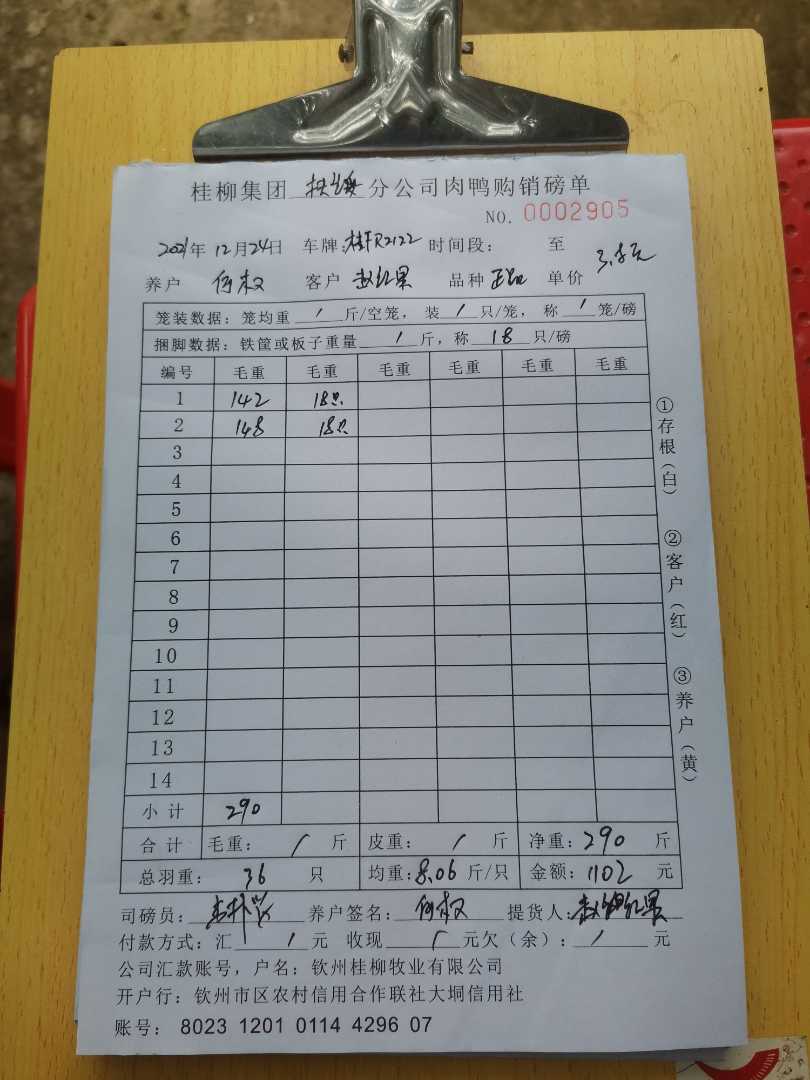 桂柳集团 分公司肉鸭购销磅单
NO. 0002905
2021年 12月24日 车牌: R2122 时间段: 至
养户 何权 客户 赵红果 品种 正品 单价 3.8元
笼装数据: 笼均重 / 斤/空笼, 装 / 只/笼, 称 / 笼/磅
捆脚数据: 铁筐或板子重量 / 斤, 称 18 只/磅
编号 毛重 毛重 毛重 毛重 毛重 毛重
1 142 18只
2 148 18只
3
4
5
6
7
8
9
10
11
12
13
14
小计 290
合计 毛重: / 斤 皮重: / 斤 净重: 290 斤
总羽重: 36 只 均重: 8.06 斤/只 金额: 1102 元
司磅员: 养户签名: 何权 提货人:
付款方式: 汇 / 元 收现 / 元欠(余): / 元
公司汇款账号, 户名: 钦州桂柳牧业有限公司
开户行: 钦州市区农村信用合作联社大垌信用社
账号: 8023 1201 0114 4296 07
①存根(白)
②客户(红)
③养户(黄)